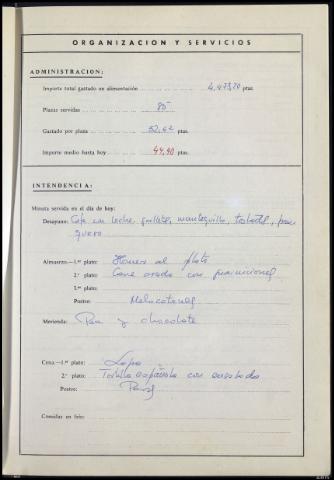 ORGANIZACION Y SERVICIOS
ADMINISTRACION:
Importe total gastado en alimentación 4.473,70 ptas.
Plazas servidas 85
Gastado por plaza 52,62 ptas.
Importe medio hasta hoy 44,90 ptas.
INTENDENCIA:
Minuta servida en el día de hoy:
Desayuno: Café con leche, galletas, mantequilla, tostadas, pan
queso
Almuerzo.—1.er plato: Huevos al plato
2.º plato: Carne asada con guarniciones
3.er plato:
Postre: Melocotones
Merienda: Pan y chocolate
Cena.—1.er plato: Sopa
2.º plato: Tortilla española con ensalada
Postre: Peras
Comidas en frío: